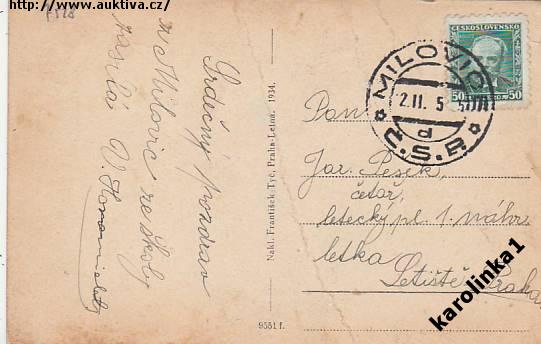 http://www.auktiva.cz/
Srdečný pozdrav
ze Milovic ze školy
zasílá
V.
Nakl. František Tyč, Praha-Letná. 1934.
9551 f.
ČESKOSLOVENSKO
50 50
MILOVICE
2.II.5
d
Č.S.R.
Pan
Jar. Pešek,
četař,
letecký pl. 1 náhr.
letka
Letiště Praha
karolinka1